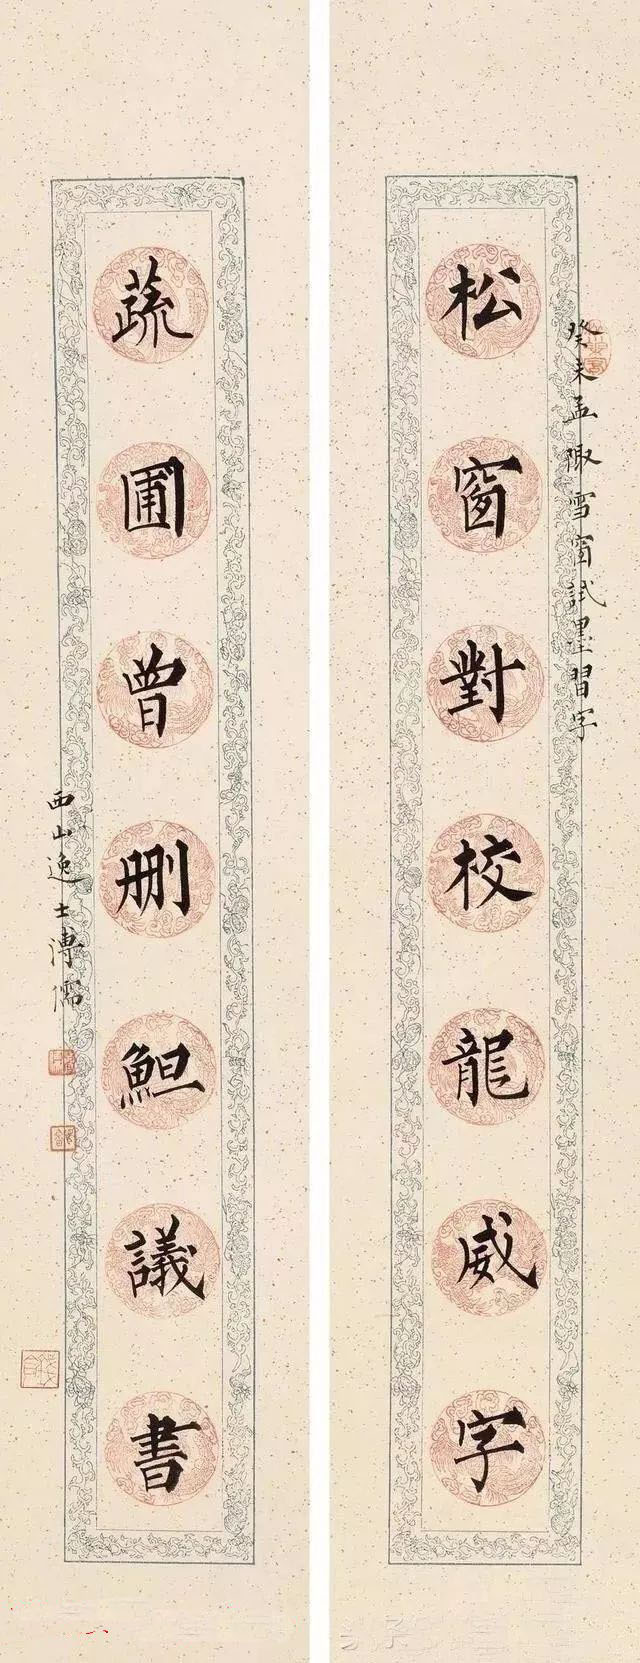 癸未孟陬雪窗試墨習字
松窗對校龍威字
蔬圃曾刪䱇議書
西山逸士溥儒